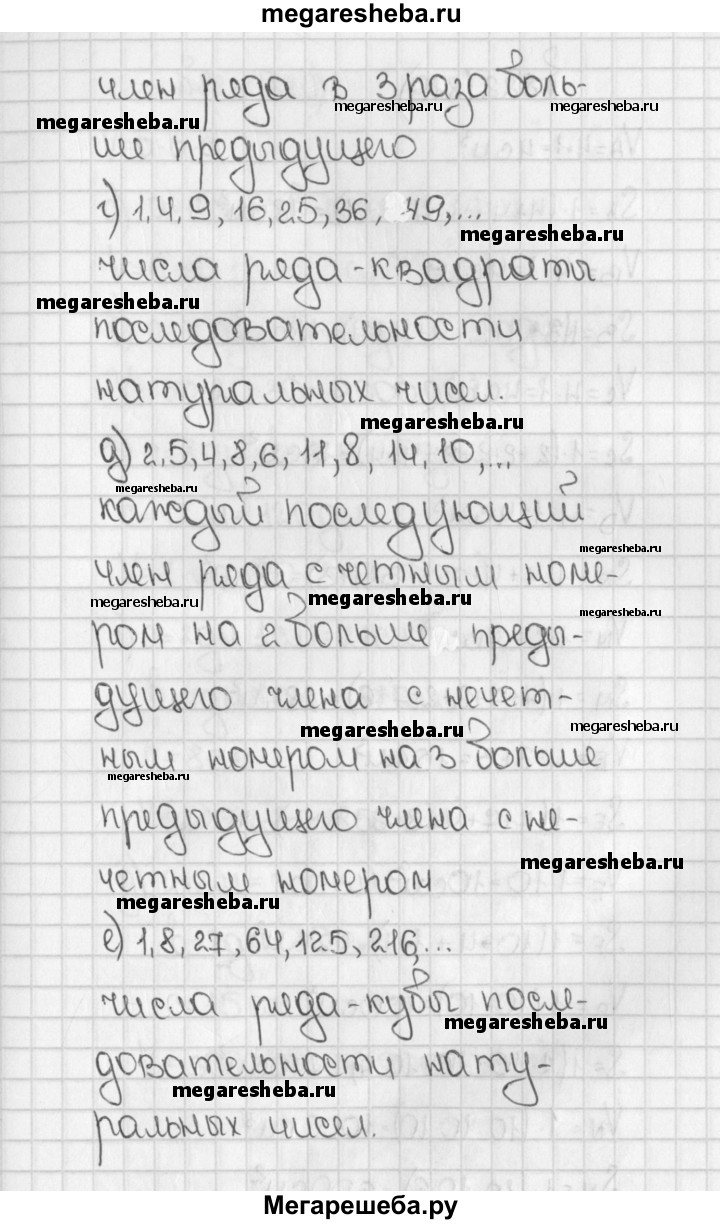 megaresheba.ru
член ряда в 3 раза боль-
megaresheba.ru megaresheba.ru
megaresheba.ru
ше предыдущего
г) 1,4,9,16,25,36, 49,...
megaresheba.ru
числа ряда-квадраты
megaresheba.ru
последовательности
натуральных чисел.
megaresheba.ru
д) 2,5,4,8,6,11,8,14,10,...
megaresheba.ru
каждый последующий
megaresheba.ru
член ряда с четным номе-
megaresheba.ru megaresheba.ru
ром на 2 больше преды-
дущего члена с нечет-
megaresheba.ru megaresheba.ru
ным номером на 3 больше
megaresheba.ru
предыдущего члена с не-
megaresheba.ru
четным номером
megaresheba.ru
е) 1,8,27,64,125,216,...
числа ряда-кубы после-
megaresheba.ru
довательности нату-
megaresheba.ru
ральных чисел.
Мегарешеба.ру